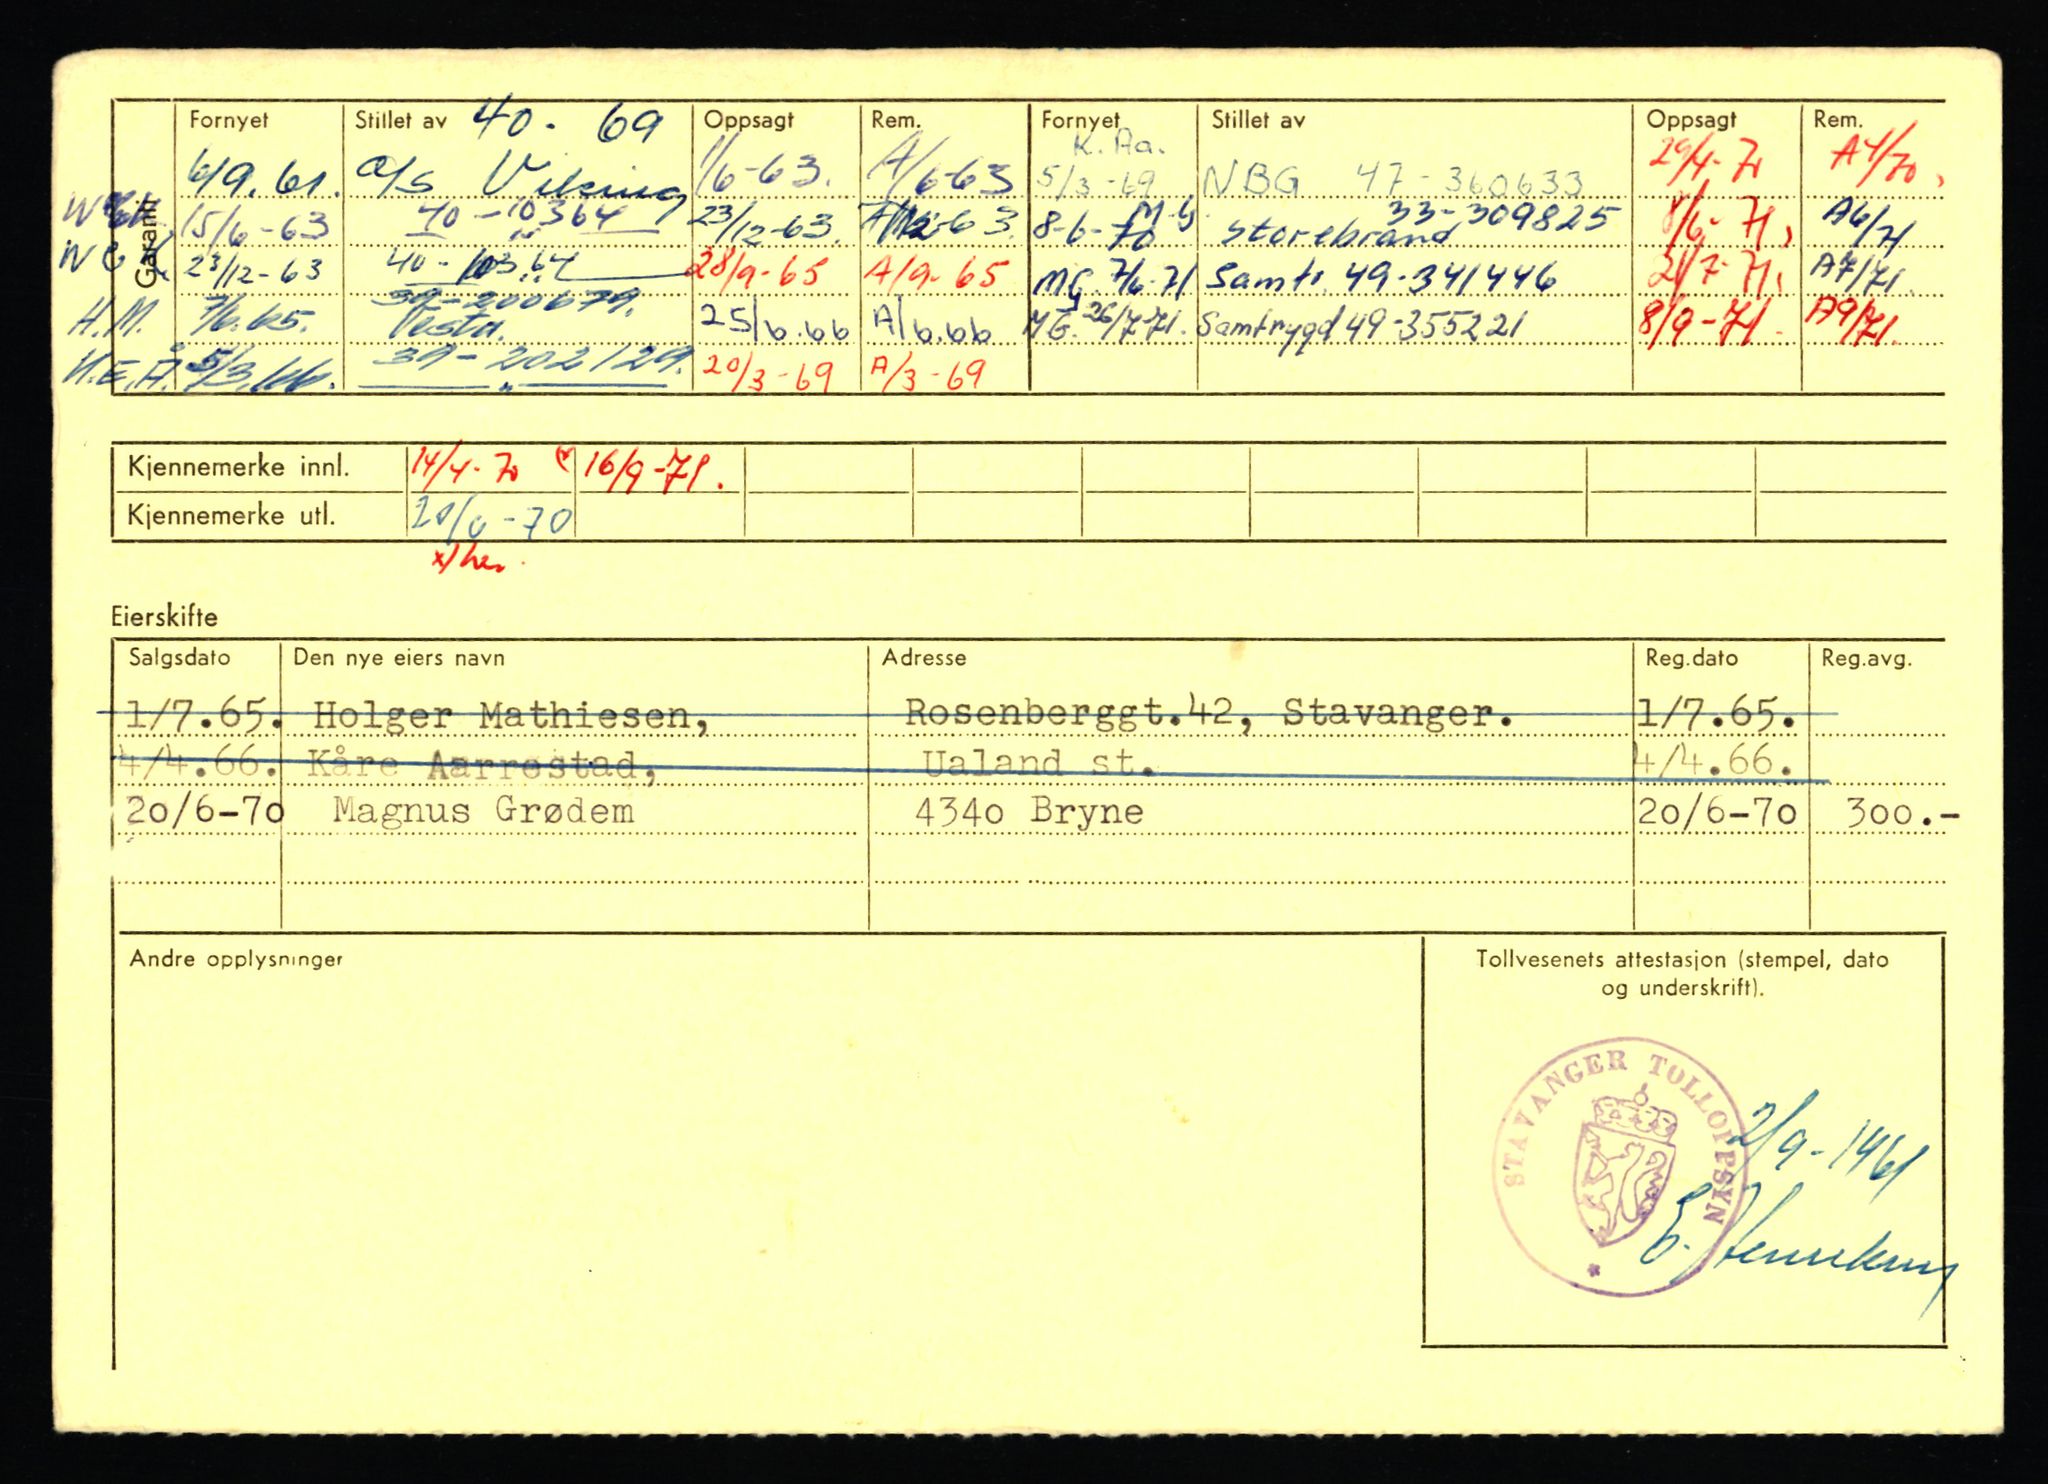 Garanti
Fornyet Stillet av 40 - 69 Oppsagt Rem. Fornyet Stillet av Oppsagt Rem.
6/9.61. A/S Viking 1/6-63. A/6-63 K.Aa. 5/3-69 NBG 47-360633 29/4-70 A4/70,
15/6-63 40-10364 23/12-63. 8-6-70 M.G. Storebrand 33-309825 8/6-71, A6/71
23/12-63 40-10364 28/9-65 A/9-65 MG. 7/6-71 Samtr. 49-341446 2/7-71, A7/71.
H.M. 7/6.65. 39-200679. Vesta. 25/6.66 A/6.66 MG. 26/7-71. Samtrygd 49-355221 8/9-71. A9/71.
K.E.Å. 5/3.66. 39-202129. 20/3-69 A/3-69
Kjennemerke innl. 14/4-70 16/9-71.
Kjennemerke utl. 20/6-70
Eierskifte
Salgsdato Den nye eiers navn Adresse Reg.dato Reg.avg.
1/7.65. Holger Mathiesen, Rosenberggt.42, Stavanger. 1/7.65.
4/4.66. Kåre Aarrestad, Ualand st. 4/4.66.
20/6-70 Magnus Grødem 4340 Bryne 20/6-70 300.-
Andre opplysninger
Tollvesenets attestasjon (stempel, dato
og underskrift).
STAVANGER TOLLOPPSYN
2/9-1961
E. Henriksen